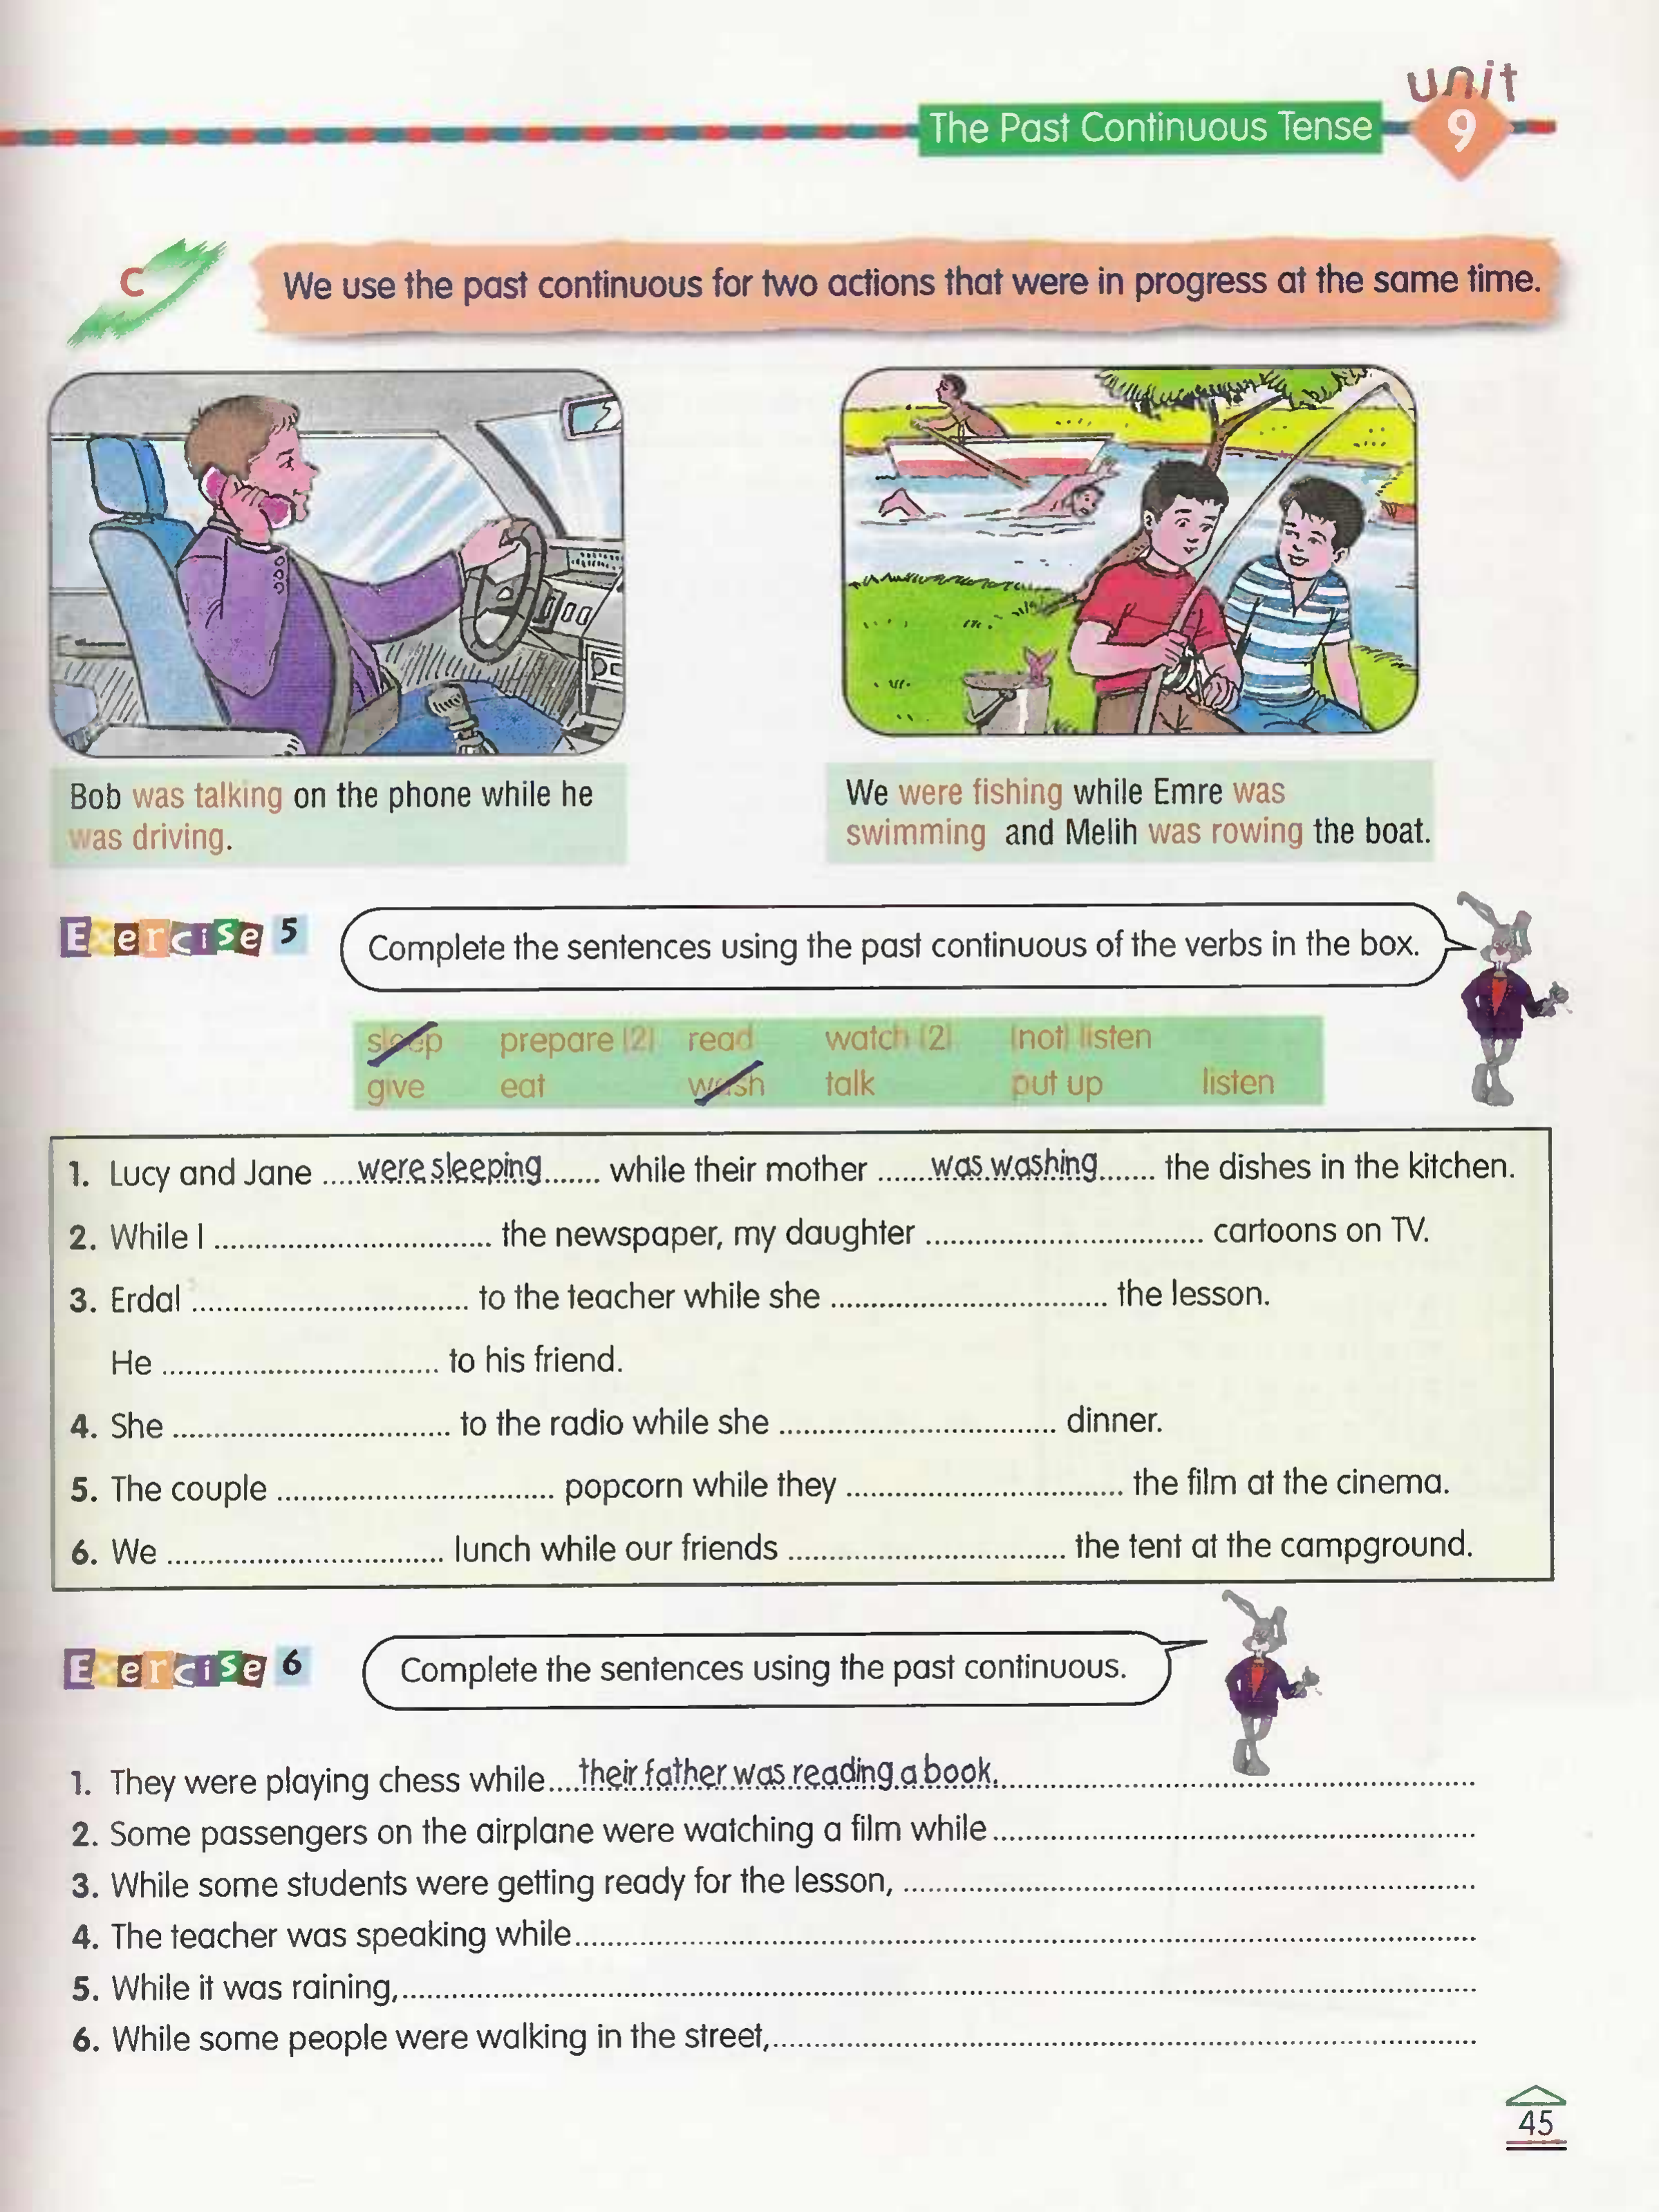 unit
The Past Continuous Tense 9
C
We use the past continuous for two actions that were in progress at the same time.
Bob was talking on the phone while he
was driving.
We were fishing while Emre was
swimming and Melih was rowing the boat.
Exercise 5
Complete the sentences using the past continuous of the verbs in the box.
sleep prepare (2) read watch (2) (not) listen
give eat wash talk put up listen
1. Lucy and Jane ....were sleeping....... while their mother ......was washing....... the dishes in the kitchen.
2. While I .................................. the newspaper, my daughter .................................. cartoons on TV.
3. Erdal .................................. to the teacher while she .................................. the lesson.
He .................................. to his friend.
4. She .................................. to the radio while she .................................. dinner.
5. The couple .................................. popcorn while they .................................. the film at the cinema.
6. We .................................. lunch while our friends .................................. the tent at the campground.
Exercise 6
Complete the sentences using the past continuous.
1. They were playing chess while....their father was reading a book...........................................................
2. Some passengers on the airplane were watching a film while...........................................................
3. While some students were getting ready for the lesson, ......................................................................
4. The teacher was speaking while.............................................................................................................
5. While it was raining,..................................................................................................................................
6. While some people were walking in the street,......................................................................................
45